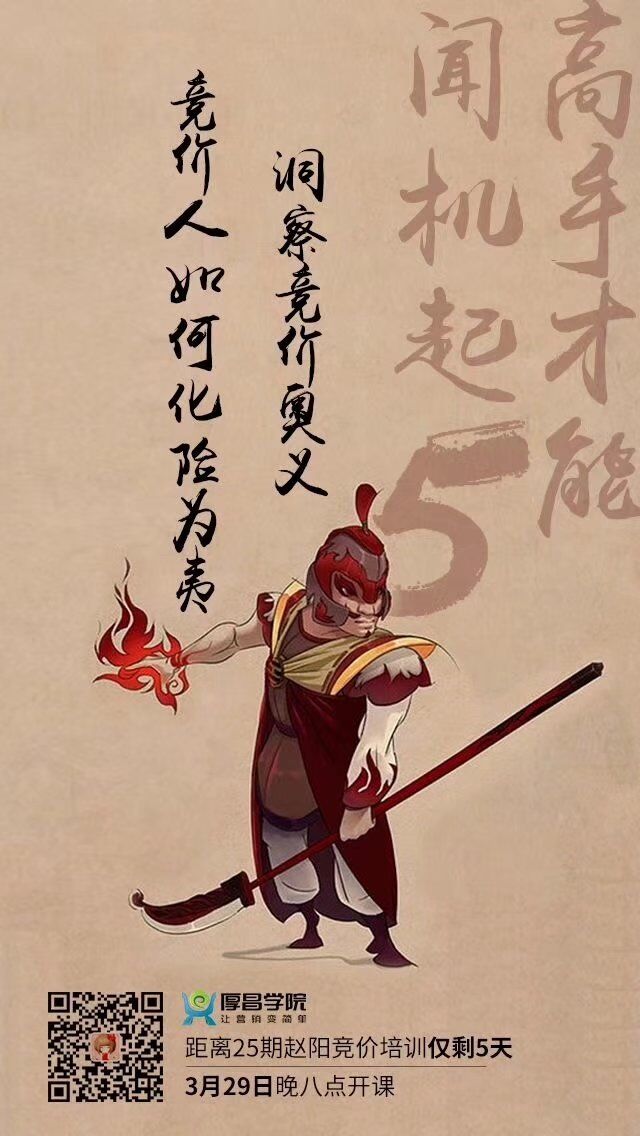 高手才能
闻机起
5
洞察竞价奥义
竞价人如何化险为夷
厚昌学院
让营销变简单
距离25期赵阳竞价培训仅剩5天
3月29日晚八点开课